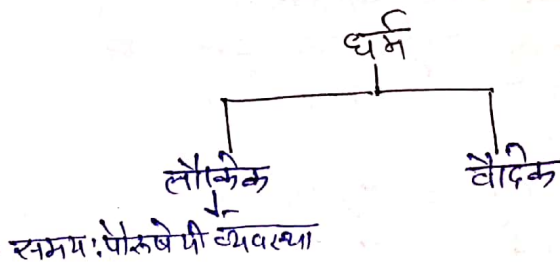 धर्म
लौकिक वैदिक
समय: पौरुषेयी व्यवस्था